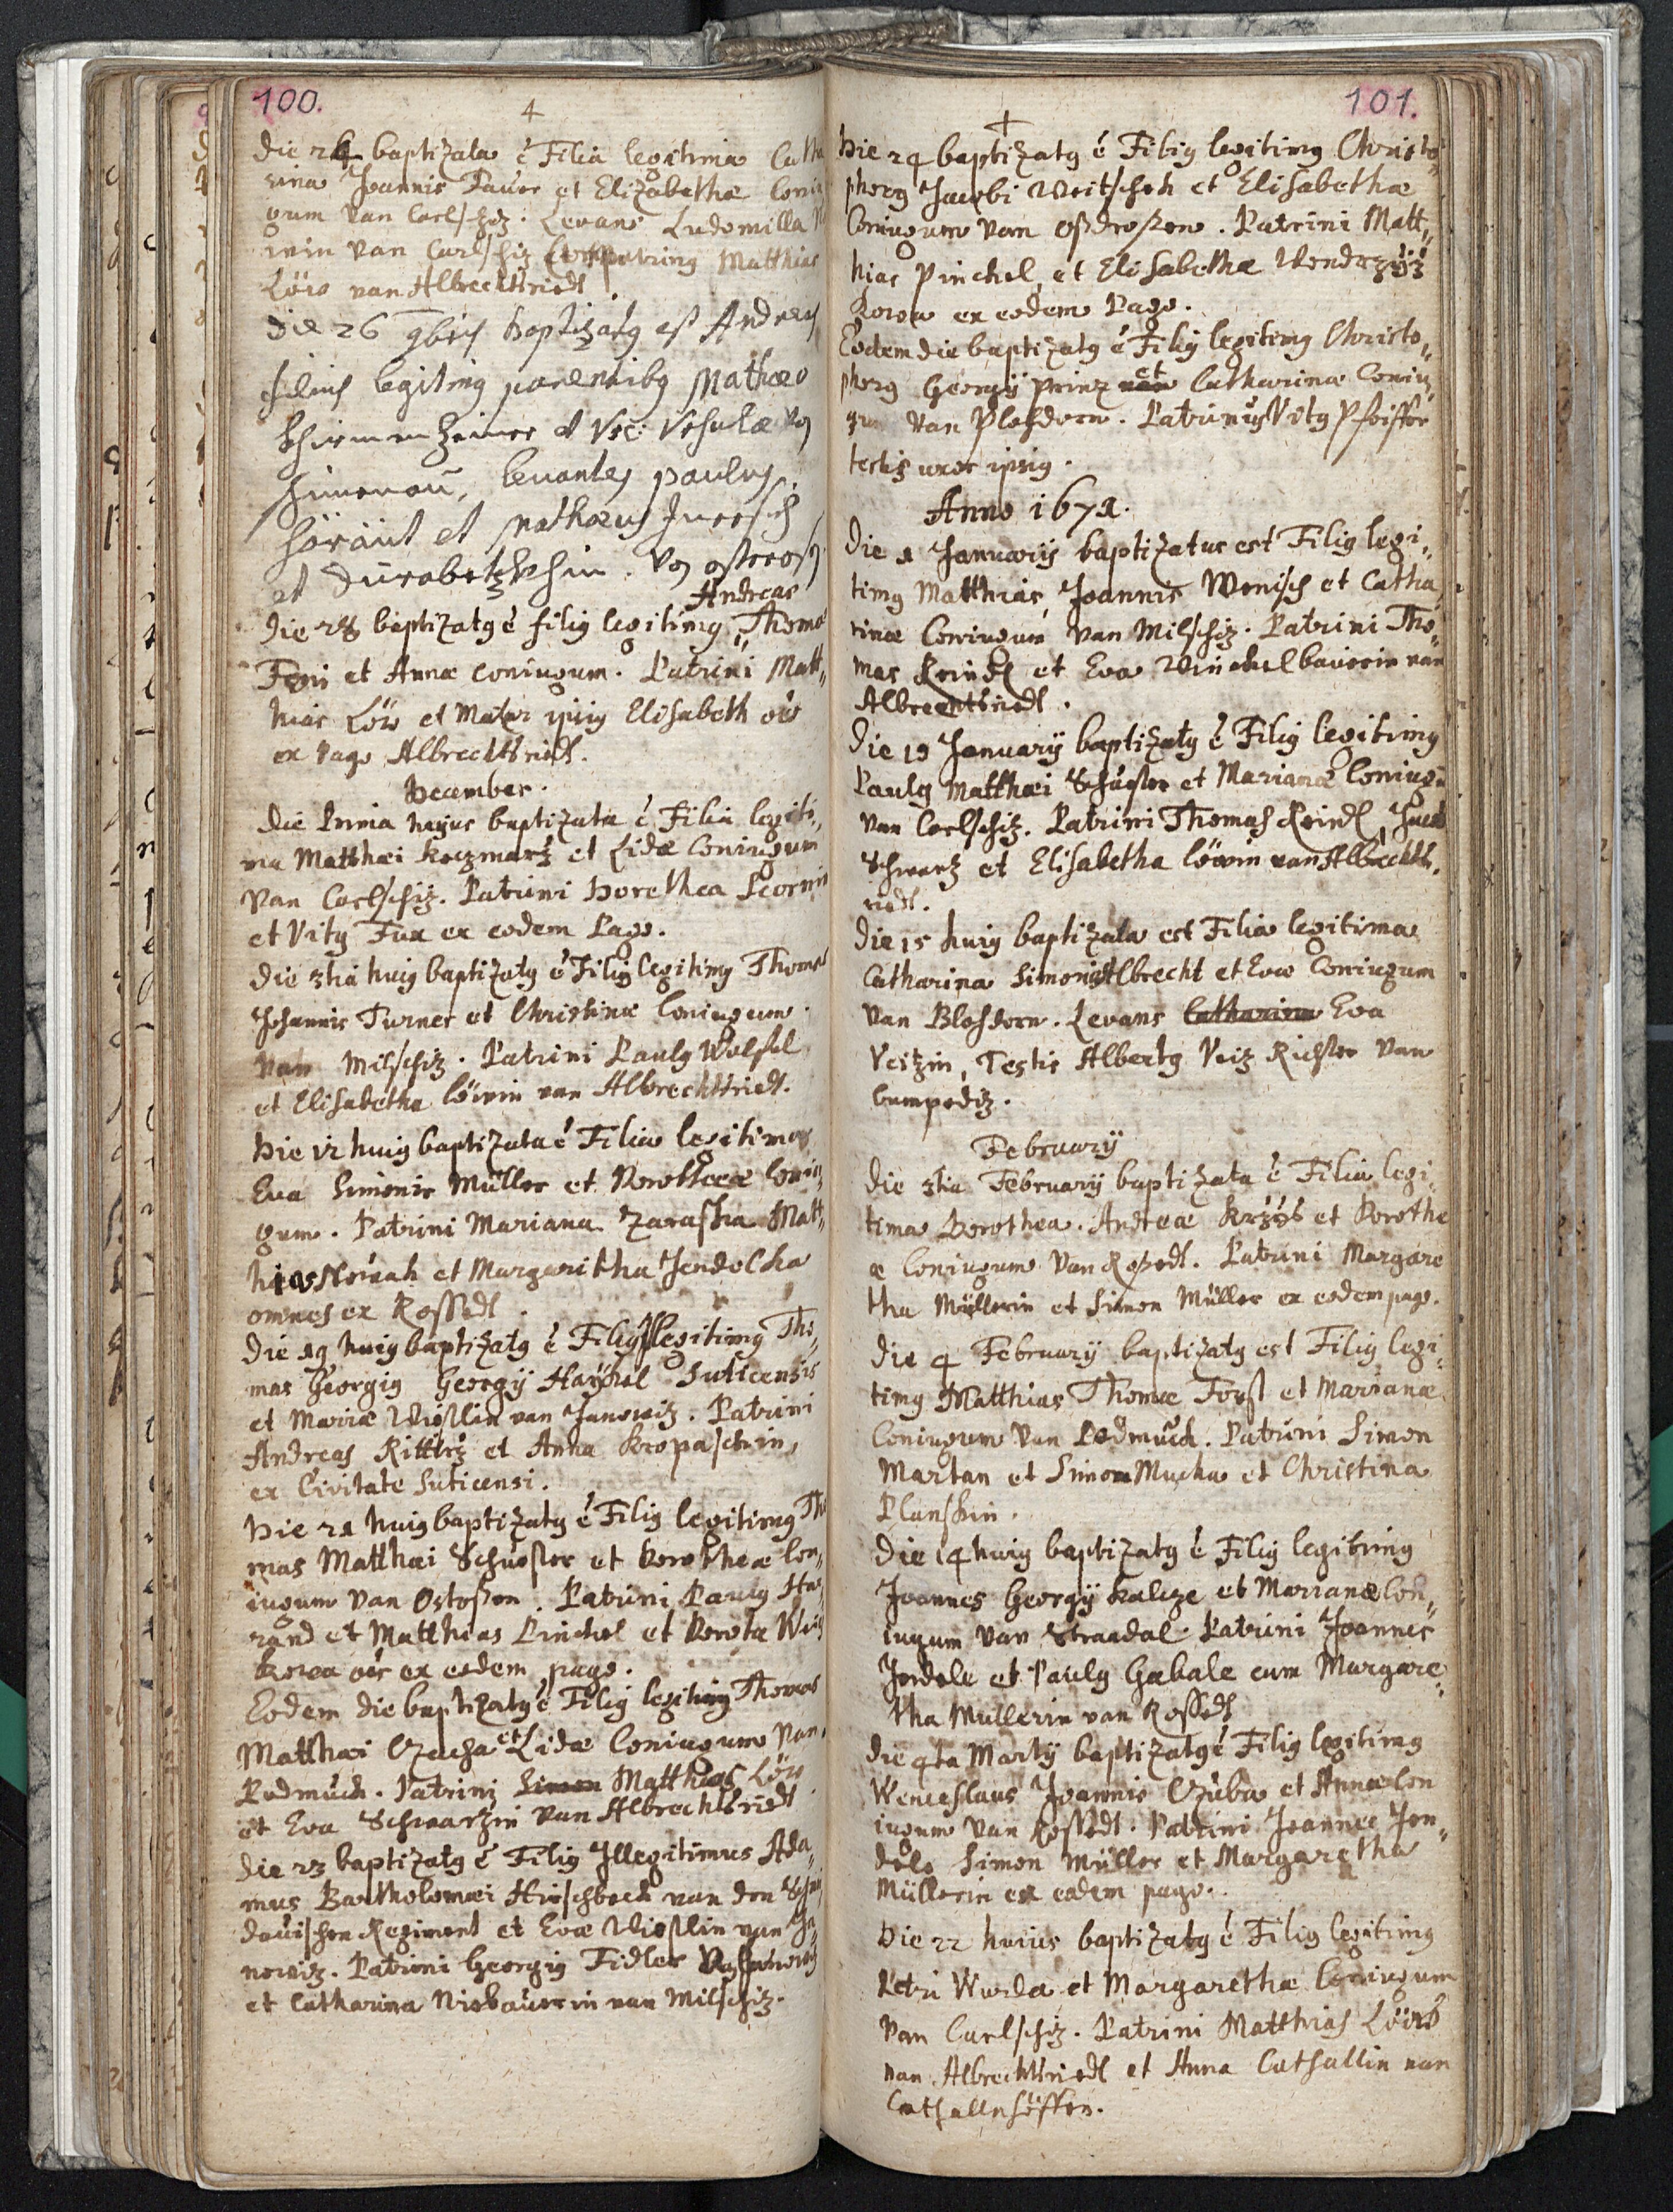 100.
4
Die 24 baptizata ė Filia legitima Catha
rina Joannis Pauer et Elizabethæ Coniu
gum Van Carlschiz. Levans Ludomilla
win Van Carlschiz Matthias
Löw van Albrechtsriedt
Die 26 9bris baptizatg est Andreas
filius legitimg parentibg Mathæo
et Vrsulæ
Levantes paulus
et Mathæus
et
Andreas
Die 28 baptizatg ė filig legitimg Thomæ
Feni et Annæ coniugum. Patrini Matt„
hias Löw et Mater ipsig Elisabeth oēs
ex Pago Albrechtsriedt.
December.
Die Prima huyus baptizata ė Filia legiti„
ma Matthæi koczmarz et Lidæ Coniugum
Van Carlschiz. Patrini Dorethea
et Vitg Fux ex eodem Pago.
Die 3tia huig baptizatg ė Filig legitimg Thomas
Johannis Turner et Christinæ Coniugum
Van Milschiz. Patrini Paulg Wolfel
et Elisabetha löwin van Albrechtsriedt.
Die 12 huig baptizata ė Filia legitima
Eva Simonis Müller et Dorotheæ Coniu„
gum. Patrini Mariana Zaraska Matt„
hias et Margaritha Jendolcha
omnes ex Rossedt
Die 19 huig baptizatg ė Filig legitimg Tho„
mas Georgig Georgÿ Haÿkel Suticensis
et Mariæ van Janowiz. Patrini
Andreas Rittirz et Anna kropaschin,
ex Civitate Suticensi.
Die 21 huig baptizatg ė Filig legitimg Tho
mas Matthæi Schuster et Dorotheæ Con„
iugum Van . Patrini Paulg Ha„
rand et Matthias Pinchel et Dorota
kowa oēs ex eodem pago.
Eodem die baptizatg ė Filig legitimg Thomas
Matthæi Czucha et Lidæ Coniugum Van
Podmuck. Patrini Simon Matthias Löw
et Eva Schwarzin van Albrechtsriedt
Die 23 baptizatg ė Filig Illegitimus Ada„
mus Bartholomæi Hirschbeck van den
dauischen Regiment et Evæ van Ja„
nowiz. Patrini Georgig Fidler
et Catharina Nisbauerin van Milschiz.
101.
Die 24 baptizatg ė Filig legitimg Christo„
pherg Jacobi et Elisabethæ
Coniugum Van . Patrini Matt„
hias Pinchel, et Elisabetha
kowa ex eodem Pago.
Eodem die baptizatg ė Filig legitimg Christo„
pherg Georgÿ Prinz et Catharinæ Coniu„
gum Van Plosdorn. Patrinus Vitg Pfeiffer
testis uxor ipsig.
Anno 1672.
Die 1 Januarÿ baptizatus est Filig legi„
timg Matthias, Joannis Wenisch et Catha„
rinæ Coniugum Van Milschiz. Patrini Tho„
mas Reindl et Eva Winckelbauerin van
Albrechtsriedt.
Die 19 Januarÿ baptizatg ė Filig legitimg
Paulg Matthæi Schuster et Marianæ Coniugū
Van Carlschiz. Patrini Thomas Reindl, Jacob
Schwarz et Elisabetha löwin van Albrechts„
riedt.
Die 15 huig baptizata est Filia legitima
Catharina Simonis Albrecht et Evæ Coniugum
Van Blosdorn. Levans Catharina Eva
Veitzin, Testis Albertg Veiz Richter Van
bumpediz.
Februarÿ
Die 3tia Februarÿ baptizata ė Filia legi„
tima Dorothea. Andreæ et Dorothe
æ Coniugum Van Rossedt. Patrini Margare
tha Müllerin et Simon Müller ex eodem pago.
Die 4 Februarÿ baptizatg est Filig legi„
timg Matthias Thomæ et Marianæ
Coniugum Van Podmuck. Patrini Simon
Martan et Simon Mucha et Christina
Planskin.
Die 14 huig baptizatg ė Filig legitimg
Joannes Georgÿ kalcze et Marianæ Con„
iugum Van Straadal. Patrini Joannes
Jendele et Paulg Gabale cum Margare„
tha Müllerin van Rossedt
Die 4ta Martÿ baptizatg ė Filig legitimg
Wenceslaus Joannis Czuba et Annæ Con
iugum Van Rossedt. Patrini Joannes Jen„
dele Simon Müller et Margaretha
Müllerin ex eodem pago.
Die 22 huius baptizatg ė Filig legitimg
Petri Wurda et Margarethæ Coniugum
Van Carlschiz. Patrini Matthias Löw
van Albrechtsriedt et Anna Cathallin van
Cathallnhöffen.